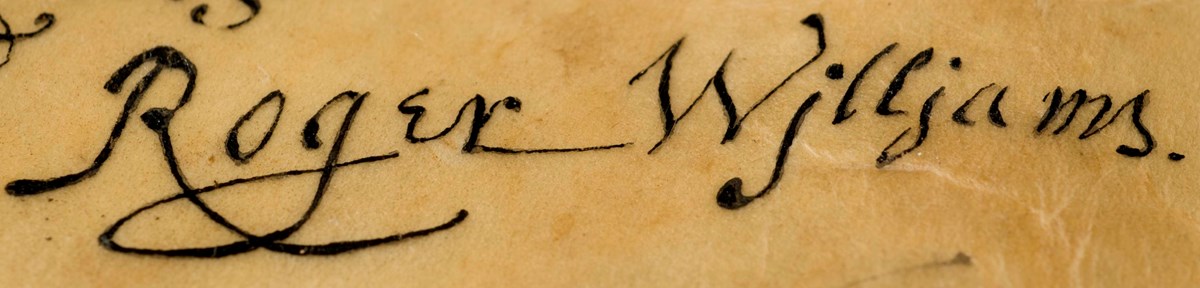 Roger Wjlljams.